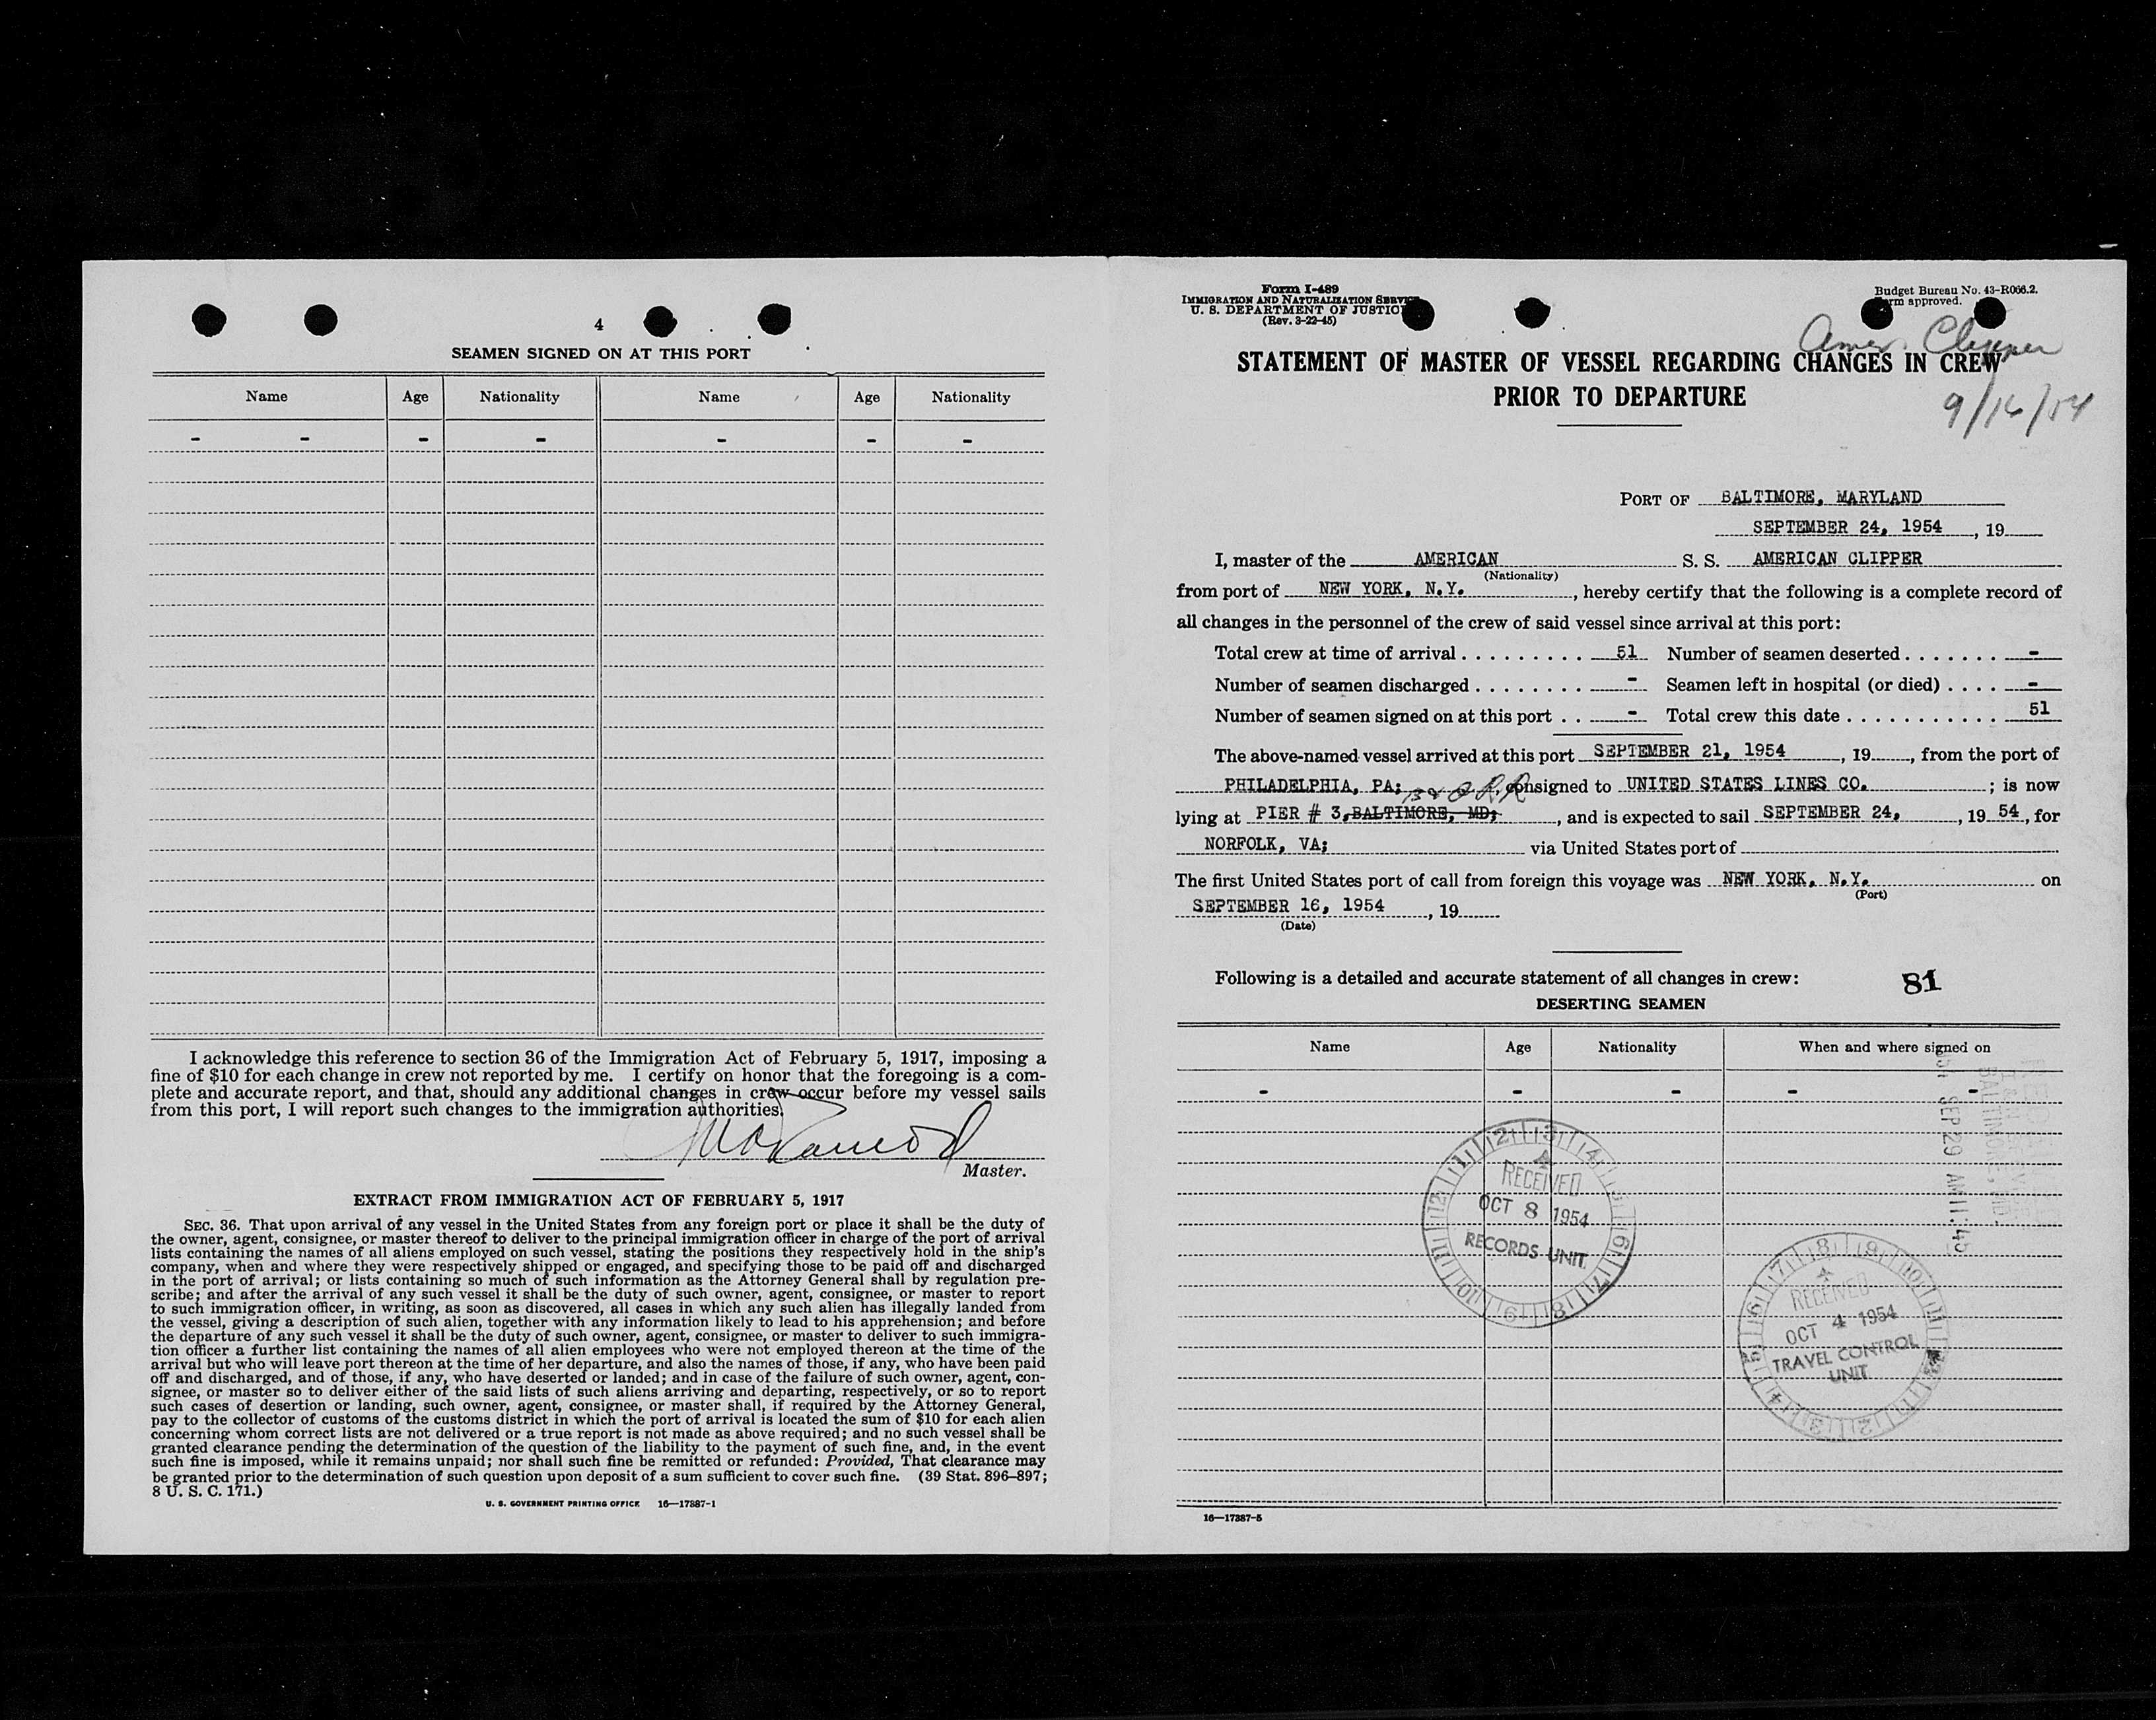 4
SEAMEN SIGNED ON AT THIS PORT
Name Age Nationality Name Age Nationality
- - - - - - -
I acknowledge this reference to section 36 of the Immigration Act of February 5, 1917, imposing a
fine of $10 for each change in crew not reported by me. I certify on honor that the foregoing is a com-
plete and accurate report, and that, should any additional changes in crew occur before my vessel sails
from this port, I will report such changes to the immigration authorities.
Master.
EXTRACT FROM IMMIGRATION ACT OF FEBRUARY 5, 1917
SEC. 36. That upon arrival of any vessel in the United States from any foreign port or place it shall be the duty of
the owner, agent, consignee, or master thereof to deliver to the principal immigration officer in charge of the port of arrival
lists containing the names of all aliens employed on such vessel, stating the positions they respectively hold in the ship's
company, when and where they were respectively shipped or engaged, and specifying those to be paid off and discharged
in the port of arrival; or lists containing so much of such information as the Attorney General shall by regulation pre-
scribe; and after the arrival of any such vessel it shall be the duty of such owner, agent, consignee, or master to report
to such immigration officer, in writing, as soon as discovered, all cases in which any such alien has illegally landed from
the vessel, giving a description of such alien, together with any information likely to lead to his apprehension; and before
the departure of any such vessel it shall be the duty of such owner, agent, consignee, or master to deliver to such immigra-
tion officer a further list containing the names of all alien employees who were not employed thereon at the time of the
arrival but who will leave port thereon at the time of her departure, and also the names of those, if any, who have been paid
off and discharged, and of those, if any, who have deserted or landed; and in case of the failure of such owner, agent, con-
signee, or master so to deliver either of the said lists of such aliens arriving and departing, respectively, or so to report
such cases of desertion or landing, such owner, agent, consignee, or master shall, if required by the Attorney General,
pay to the collector of customs of the customs district in which the port of arrival is located the sum of $10 for each alien
concerning whom correct lists are not delivered or a true report is not made as above required; and no such vessel shall be
granted clearance pending the determination of the question of the liability to the payment of such fine, and, in the event
such fine is imposed, while it remains unpaid; nor shall such fine be remitted or refunded: Provided, That clearance may
be granted prior to the determination of such question upon deposit of a sum sufficient to cover such fine. (39 Stat. 896–897;
8 U. S. C. 171.)
U. S. GOVERNMENT PRINTING OFFICE 16—17387-1
Form I-489
IMMIGRATION AND NATURALIZATION SERVICE
U. S. DEPARTMENT OF JUSTICE
(Rev. 3-22-45)
Budget Bureau No. 43-R066.2.
Form approved.
Amer. Clipper
STATEMENT OF MASTER OF VESSEL REGARDING CHANGES IN CREW
PRIOR TO DEPARTURE
9/16/54
PORT OF BALTIMORE, MARYLAND
SEPTEMBER 24, 1954, 19
I, master of the AMERICAN S. S. AMERICAN CLIPPER
(Nationality)
from port of NEW YORK, N.Y., hereby certify that the following is a complete record of
all changes in the personnel of the crew of said vessel since arrival at this port:
Total crew at time of arrival 51 Number of seamen deserted -
Number of seamen discharged - Seamen left in hospital (or died) -
Number of seamen signed on at this port - Total crew this date 51
The above-named vessel arrived at this port SEPTEMBER 21, 1954, 19, from the port of
PHILADELPHIA, PA; consigned to UNITED STATES LINES CO. ; is now
B & O R.R
lying at PIER # 3, BALTIMORE, MD; , and is expected to sail SEPTEMBER 24, , 19 54, for
NORFOLK, VA; via United States port of
The first United States port of call from foreign this voyage was NEW YORK, N.Y. on
(Port)
SEPTEMBER 16, 1954, 19
(Date)
Following is a detailed and accurate statement of all changes in crew: 81
DESERTING SEAMEN
Name Age Nationality When and where signed on
- - - - -
RECEIVED
OCT 8 1954
RECORDS UNIT
RECEIVED
OCT 4 1954
TRAVEL CONTROL
UNIT
BALTIMORE, MD.
SEP 29 AM 11:45
16—17387-5